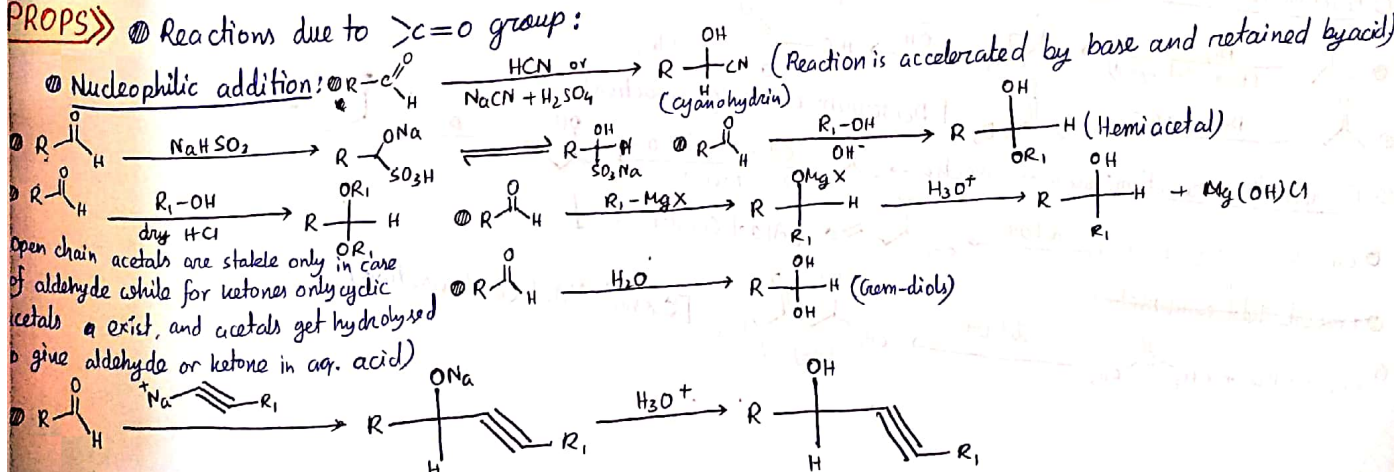 PROPS>> Reactions due to >C=O group:
Nucleophilic addition: R-C(=O)H HCN or NaCN + H2SO4 → R OH CN H (cyanohydrin) (Reaction is accelerated by base and retained by acid)
R O H NaHSO3 → R ONa SO3H ⇌ R OH H SO3Na R O H R1-OH OH- → R OH H OR1 (Hemiacetal)
R O H R1-OH dry HCl → R OR1 H OR1 R O H R1-MgX → R OMgX H R1 H3O+ → R OH H R1 + Mg(OH)Cl
Open chain acetals are stalele only in case
of aldehyde while for ketones only cyclic
acetals exist, and acetals get hydrolysed
to give aldehyde or ketone in aq. acid)
R O H H2O → R OH H OH (Gem-diols)
R O H +Na- ≡ R1 → R ONa H ≡ R1 H3O+ → R OH H ≡ R1